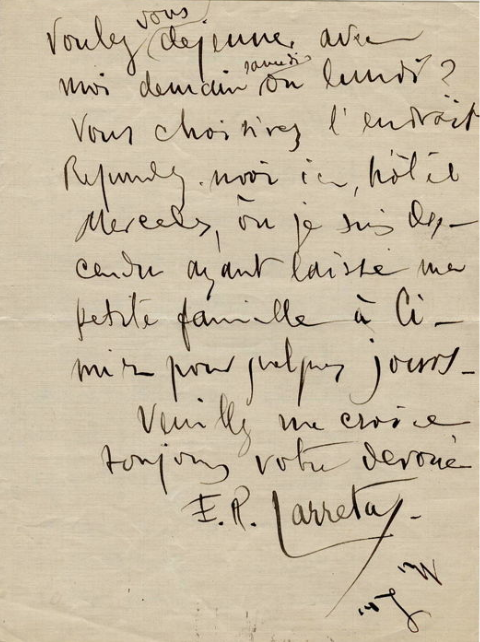 Voulez vous dejeuner avec
moi demain samedi ou lundi ?
Vous choisirez l'endroit
Repondez-moi ici, hôtel
Mercedes, où je suis des-
cendu ayant laissé ma
petite famille à Ci-
miez pour quelques jours-
Veuillez me croire
toujours votre devoué
E. R. Larreta-